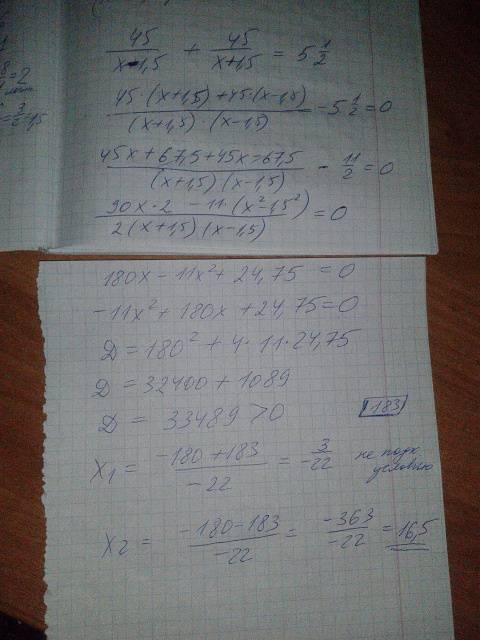 45/(x-1,5) + 45/(x+1,5) = 5 1/2
(45·(x+1,5)+45·(x-1,5))/((x+1,5)·(x-1,5)) - 5 1/2 = 0
(45x+67,5+45x-67,5)/((x+1,5)(x-1,5)) - 11/2 = 0
(90x·2 -11·(x²-1,5²))/(2(x+1,5)(x-1,5)) = 0
180x - 11x² + 24,75 = 0
-11x² + 180x + 24,75 = 0
Д = 180² + 4·11·24,75
Д = 32400 + 1089
Д = 33489 > 0
183
x1 = (-180+183)/-22 = 3/-22 не подх условию
x2 = (-180-183)/-22 = -363/-22 = 16,5